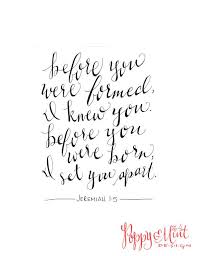 before you
were formed,
I knew you
before you
were born,
I set you apart.
JEREMIAH 1:5
Poppy & Mint
DESIGN